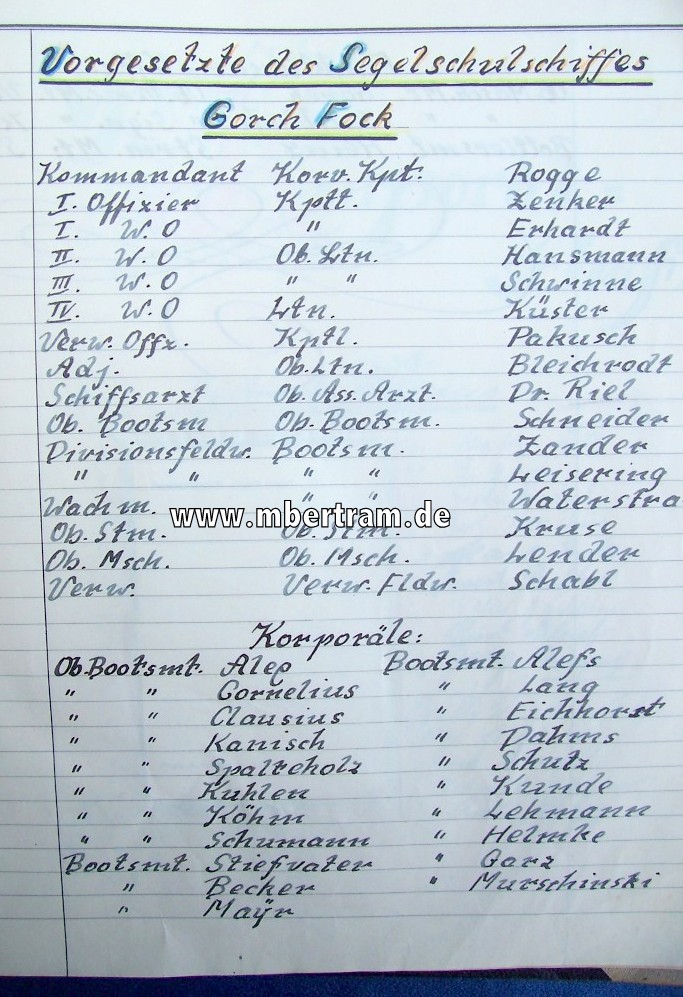 Vorgesetzte des Segelschulschiffes
Gorch Fock
Kommandant Korv. Kpt. Rogge
I. Offizier Kptt. Zenker
I. W. O " Erhardt
II. W. O Ob. Ltn. Hansmann
III. W. O " " Schwinne
IV. W. O Ltn. Küster
Verw. Offz. Kptl. Pakusch
Adj. Ob. Ltn. Bleichrodt
Schiffsarzt Ob. Ass. Arzt. Dr. Riel
Ob. Bootsm Ob. Bootsm. Schneider
Divisionsfeldw. Bootsm. Zander
" " " " Leisering
Wachm. " " Waterstra
www.mbertram.de
Ob. Stm. Ob. Stm. Kruse
Ob. Msch. Ob. Msch. Lender
Verw. Verw. Fldw. Schabl
Korporäle:
Ob. Bootsmt. Alep Bootsmt. Alefs
" " Cornelius " Lang
" " Clausius " Eichhorst
" " Kanisch " Dahms
" " Spalteholz " Schutz
" " Kuhlen " Kunde
" " Köhm " Lehmann
" " Schumann " Helmke
Bootsmt. Stiefvater " Garz
" Becker " Murschinski
" Mayr